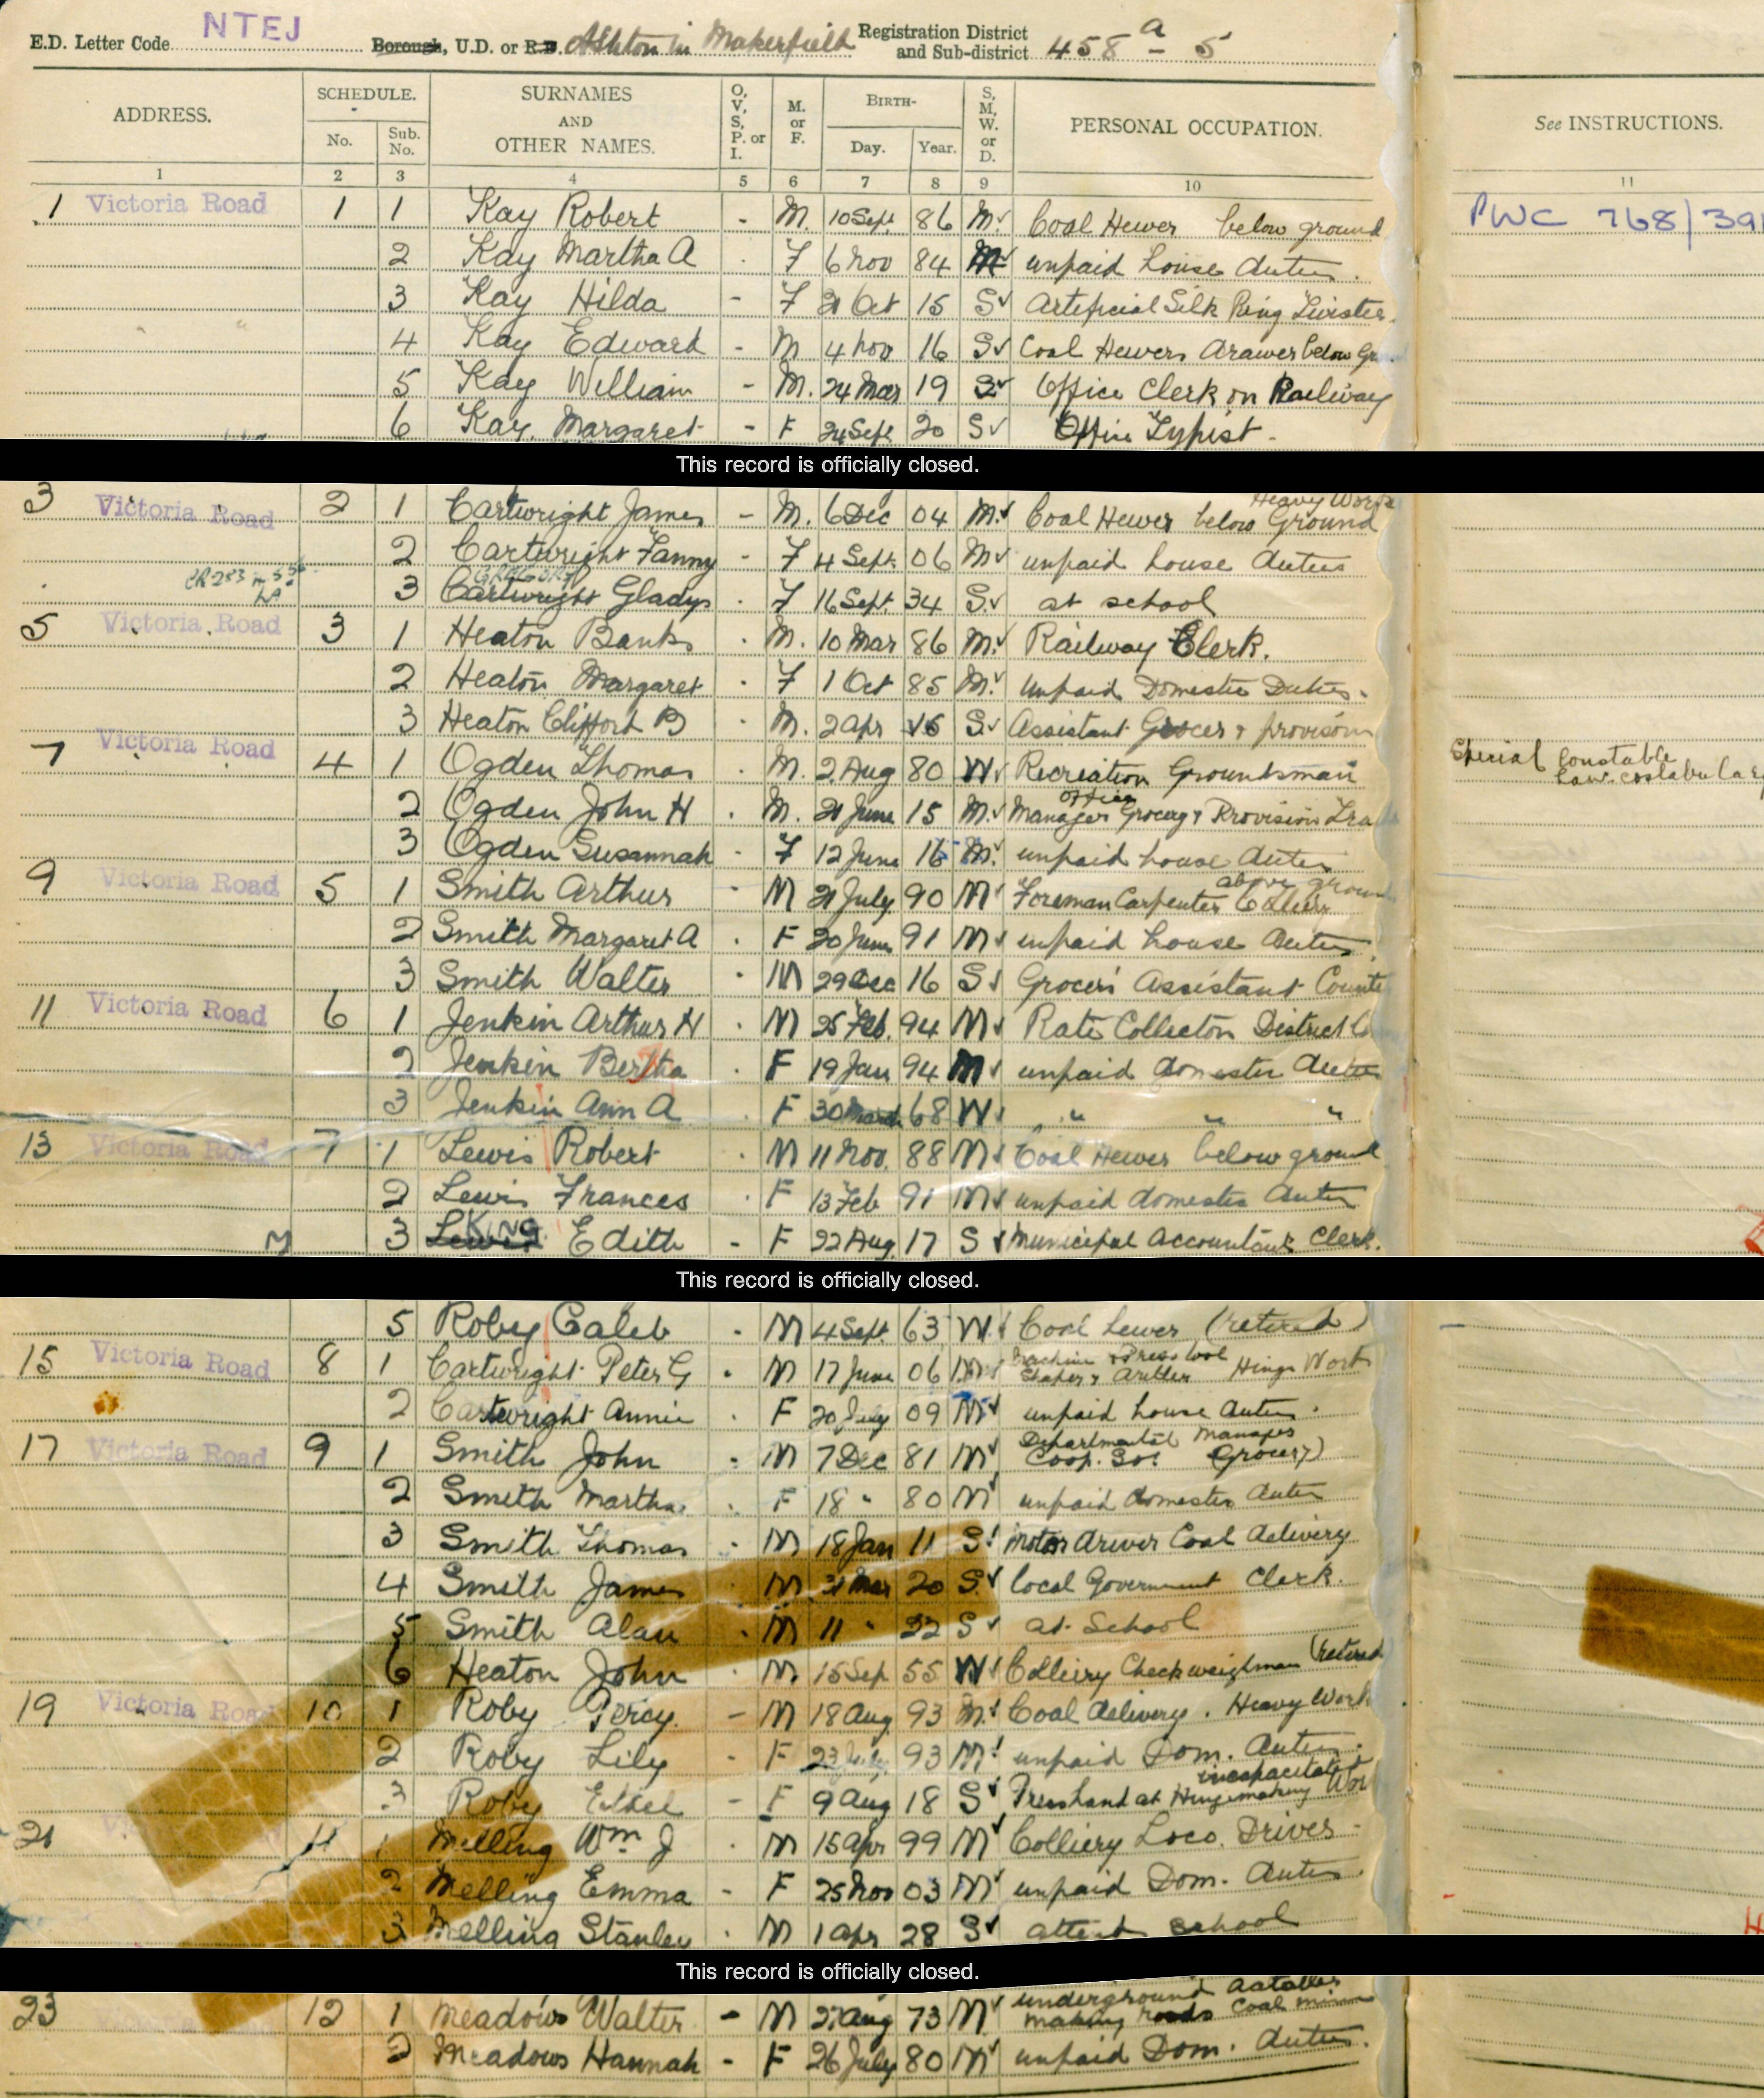 E.D. Letter Code NTEJ Borough, U.D. or R.D. Ashton in Makerfield Registration District and Sub-district 458 a - 5
ADDRESS. SCHEDULE. No. Sub. No. SURNAMES AND OTHER NAMES. O, V, S, P. or I. M. or F. BIRTH- Day. Year. S, M, W. or D. PERSONAL OCCUPATION. See INSTRUCTIONS.
1 2 3 4 5 6 7 8 9 10 11
1 Victoria Road 1 1 Kay Robert - M. 10 Sept 86 M. Coal Hewer below ground PWC 768/39
2 Kay Martha A . F 6 Nov 84 M unpaid house duties.
3 Kay Hilda - F 21 Oct 15 S Arteficial Silk Ring Twister
4 Kay Edward - M 4 Nov 16 S Coal Hewers drawer below
5 Kay William - M. 24 Mar 19 S Office Clerk on Railway
6 Kay. Margaret - F 24 Sept 20 S Office Typist -
This record is officially closed.
Heavy Work
3 Victoria Road 2 1 Cartwright James - M. 6 Dec 04 M. Coal Hewer below Ground
2 Cartwright Fanny - F 4 Sept. 06 M unpaid house duties
3 Cartwright Gladys . F 16 Sept. 34 S. at school
5 Victoria Road 3 1 Heaton Banks . M. 10 Mar 86 M. Railway Clerk.
2 Heaton Margaret . F 1 Oct 85 M. Unpaid Domestic Duties.
3 Heaton Clifford B . M. 2 Apr S. Assistant Grocer & provision
7 Victoria Road 4 1 Ogden Thomas . M. 2 Aug 80 W Recreation Groundsman Special Constable
2 Ogden John H . M. 21 June 15 M. Manager Grocery & Provision
3 Ogden Susannah - F 12 June 16 M. unpaid house duties
above ground
9 Victoria Road 5 1 Smith Arthur - M 21 July 90 M Foreman Carpenter Colliery
2 Smith Margaret A . F 20 June 91 M unpaid house duties
3 Smith Walter . M 29 Dec 16 S Grocer's Assistant
11 Victoria Road 6 1 Jenkin Arthur H . M 25 Feb. 94 M Rate Collector District
2 Jenkin Bertha . F 19 Jan 94 M unpaid domestic duties
3 Jenkin Ann A . F 30 March 68 W " " "
13 Victoria Road 7 1 Lewis Robert . M 11 Nov. 88 M Coal Hewer below ground
2 Lewis Frances . F 13 Feb 91 M unpaid domestic duties
KING
3 Lewis Edith - F 22 Aug 17 S Municipal Accountants Clerk.
This record is officially closed.
5 Roby Caleb . M 4 Sept 63 W. Coal hewer (retired)
15 Victoria Road 8 1 Cartwright Peter G . M 17 June 06 M Hinge Works
2 Cartwright Annie . F 20 July 09 M unpaid house duties.
Departmental Manager
17 Victoria Road 9 1 Smith John - M 7 Dec 81 M Coop. Soc. Grocery)
2 Smith Martha . F 18 " 80 M unpaid domestic duties
3 Smith Thomas . M 18 Jan 11 S Motor driver Coal delivery
4 Smith James . M 31 Mar 20 S. Local Government Clerk.
5 Smith Alan . M 11 " 32 S at School
6 Heaton John . M. 15 Sep 55 W Colliery Checkweighman (retired)
19 Victoria Road 10 1 Roby Percy. - M 18 Aug 93 M. Coal delivery. Heavy Work
2 Roby Lily - F 23 July 93 M unpaid Dom. duties.
incapacitated
3 Roby Ethel - F 9 Aug 18 S Presshand at Hingemaking Wor
21 11 1 Melling Wm J . M 15 Apr 99 M Colliery Loco. Driver -
2 Melling Emma - F 25 Nov 03 M unpaid Dom. duties.
3 Melling Stanley . M 1 Apr 28 S attends school
This record is officially closed.
underground dataller
23 12 1 Meadows Walter - M 27 Aug 73 M making roads coal mine
2 Meadows Hannah - F 26 July 80 M unpaid Dom. duties.